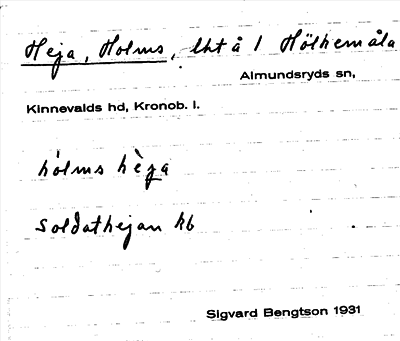 Heja, Holms, lht å 1 Hölhemåla
Almundsryds sn,
Kinnevalds hd, Kronob. l.
hólms hèja
Soldathejan kb
Sigvard Bengtson 1931